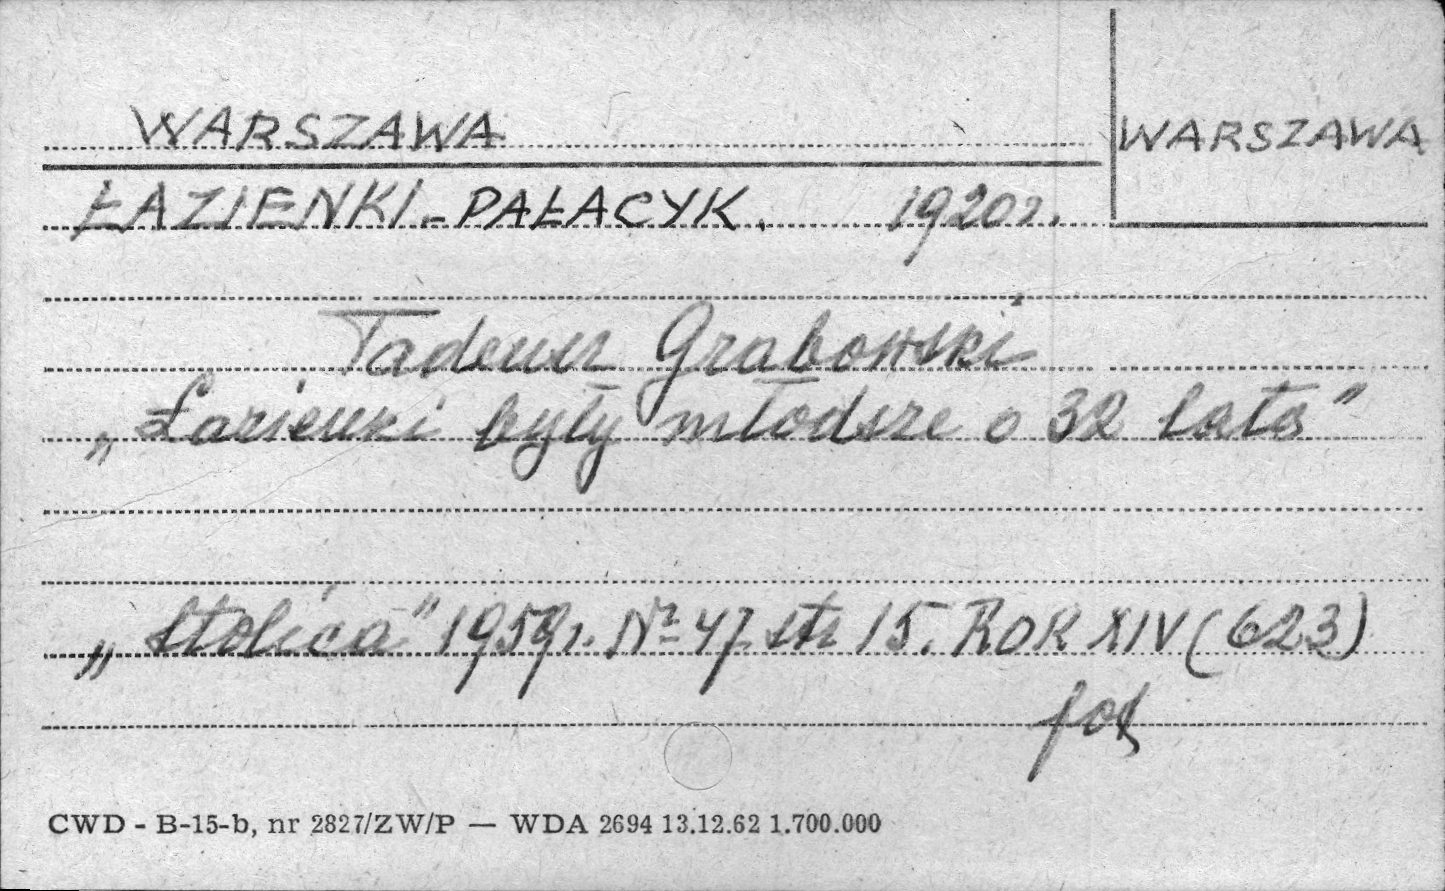 WARSZAWA
WARSZAWA
ŁAZIENKI - PAŁACYK. 1920 r.
Tadeusz Grabowski
„Łazienki były młodsze o 32 lata”
„Stolica” 1959 r. Nr 47 str 15. ROK XIV (623)
fot
CWD - B-15-b, nr 2827/ZW/P — WDA 2694 13.12.62 1.700.000